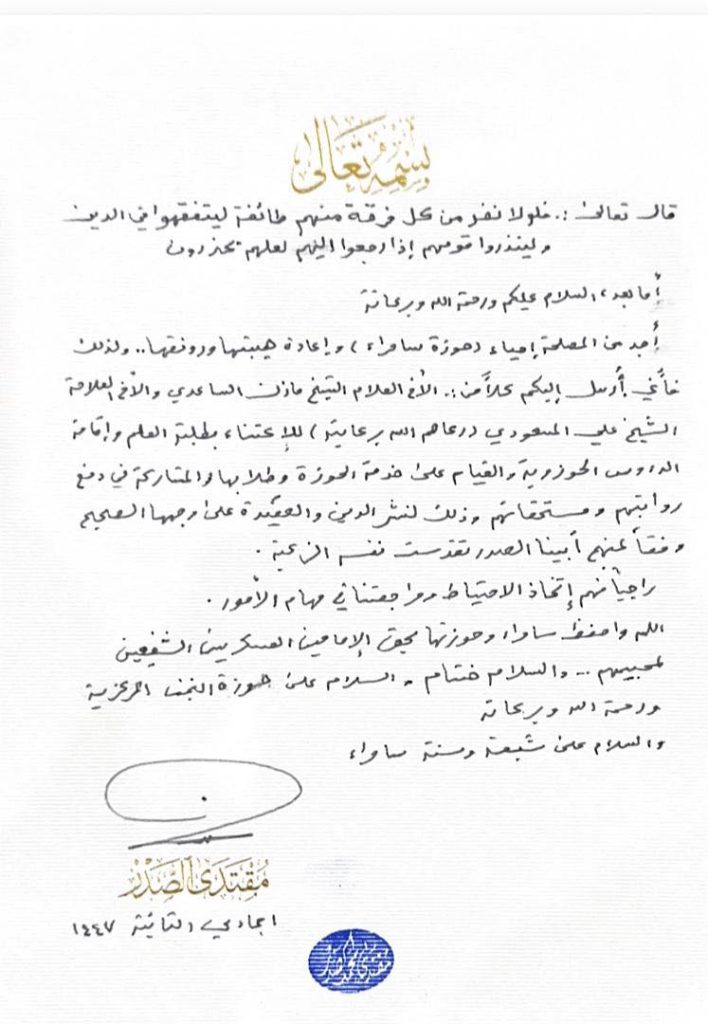 بسمه تعالى
قال تعالى :. فلولا نفر من كل فرقة منهم طائفة ليتفقهوا في الدين
ولينذروا قومهم إذا رجعوا إليهم لعلهم يحذرون
أما بعد، السلام عليكم ورحمة الله وبركاته
أجد من المصلحة إحياء (حوزة سامراء) وإعادة هيبتها ورونقها.. ولذلك
فأني أرسل إليكم كلاً من:. الأخ العلام الشيخ مازن الساعدي والأخ العلامة
الشيخ علي المسعودي (رعاهم الله برعايته) للإعتناء بطلبة العلم وإقامة
الدروس الحوزوية والقيام على خدمة الحوزة وطلابها والمشاركة في دفع
رواتبهم ومستحقاتهم وذلك لنشر الدين والعقيدة على وجهها الصحيح
وفقاً لمنهج أبينا الصدر تقدست نفسه الزكية.
راجياً منهم إتخاذ الاحتياط ومراجعتنا في مهام الأمور.
اللهم واحفظ سامراء وحوزتها بحق الإمامين العسكريين الشفيعين
لمحبيهم... والسلام ختام. والسلام على حوزة النجف المركزية
ورحمة الله وبركاته
والسلام على شيعة وسنة سامراء
مُقْتَدَى الصَّدْر
١ جمادي الثانية ١٤٤٧